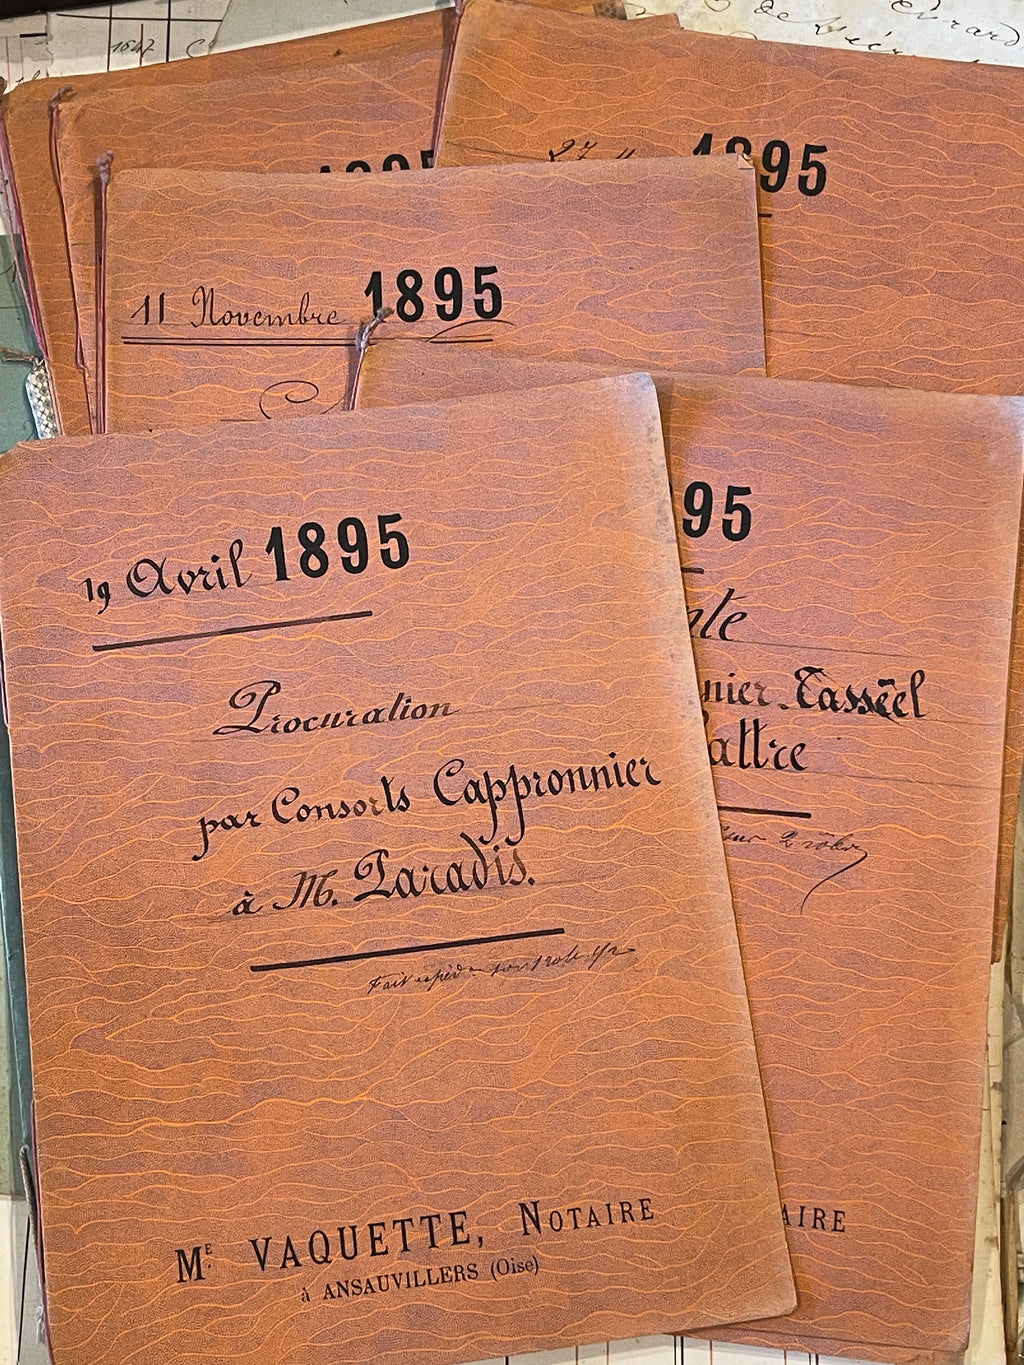 1647
de
1895
27 1895
11 Novembre 1895
19 Avril 1895
Procuration
par Consorts Cappronnier
à M. Paradis.
Fait
Mᴱ VAQUETTE, NOTAIRE
à ANSAUVILLERS (Oise)
95
nte
nier-Tasséel
attre
AIRE